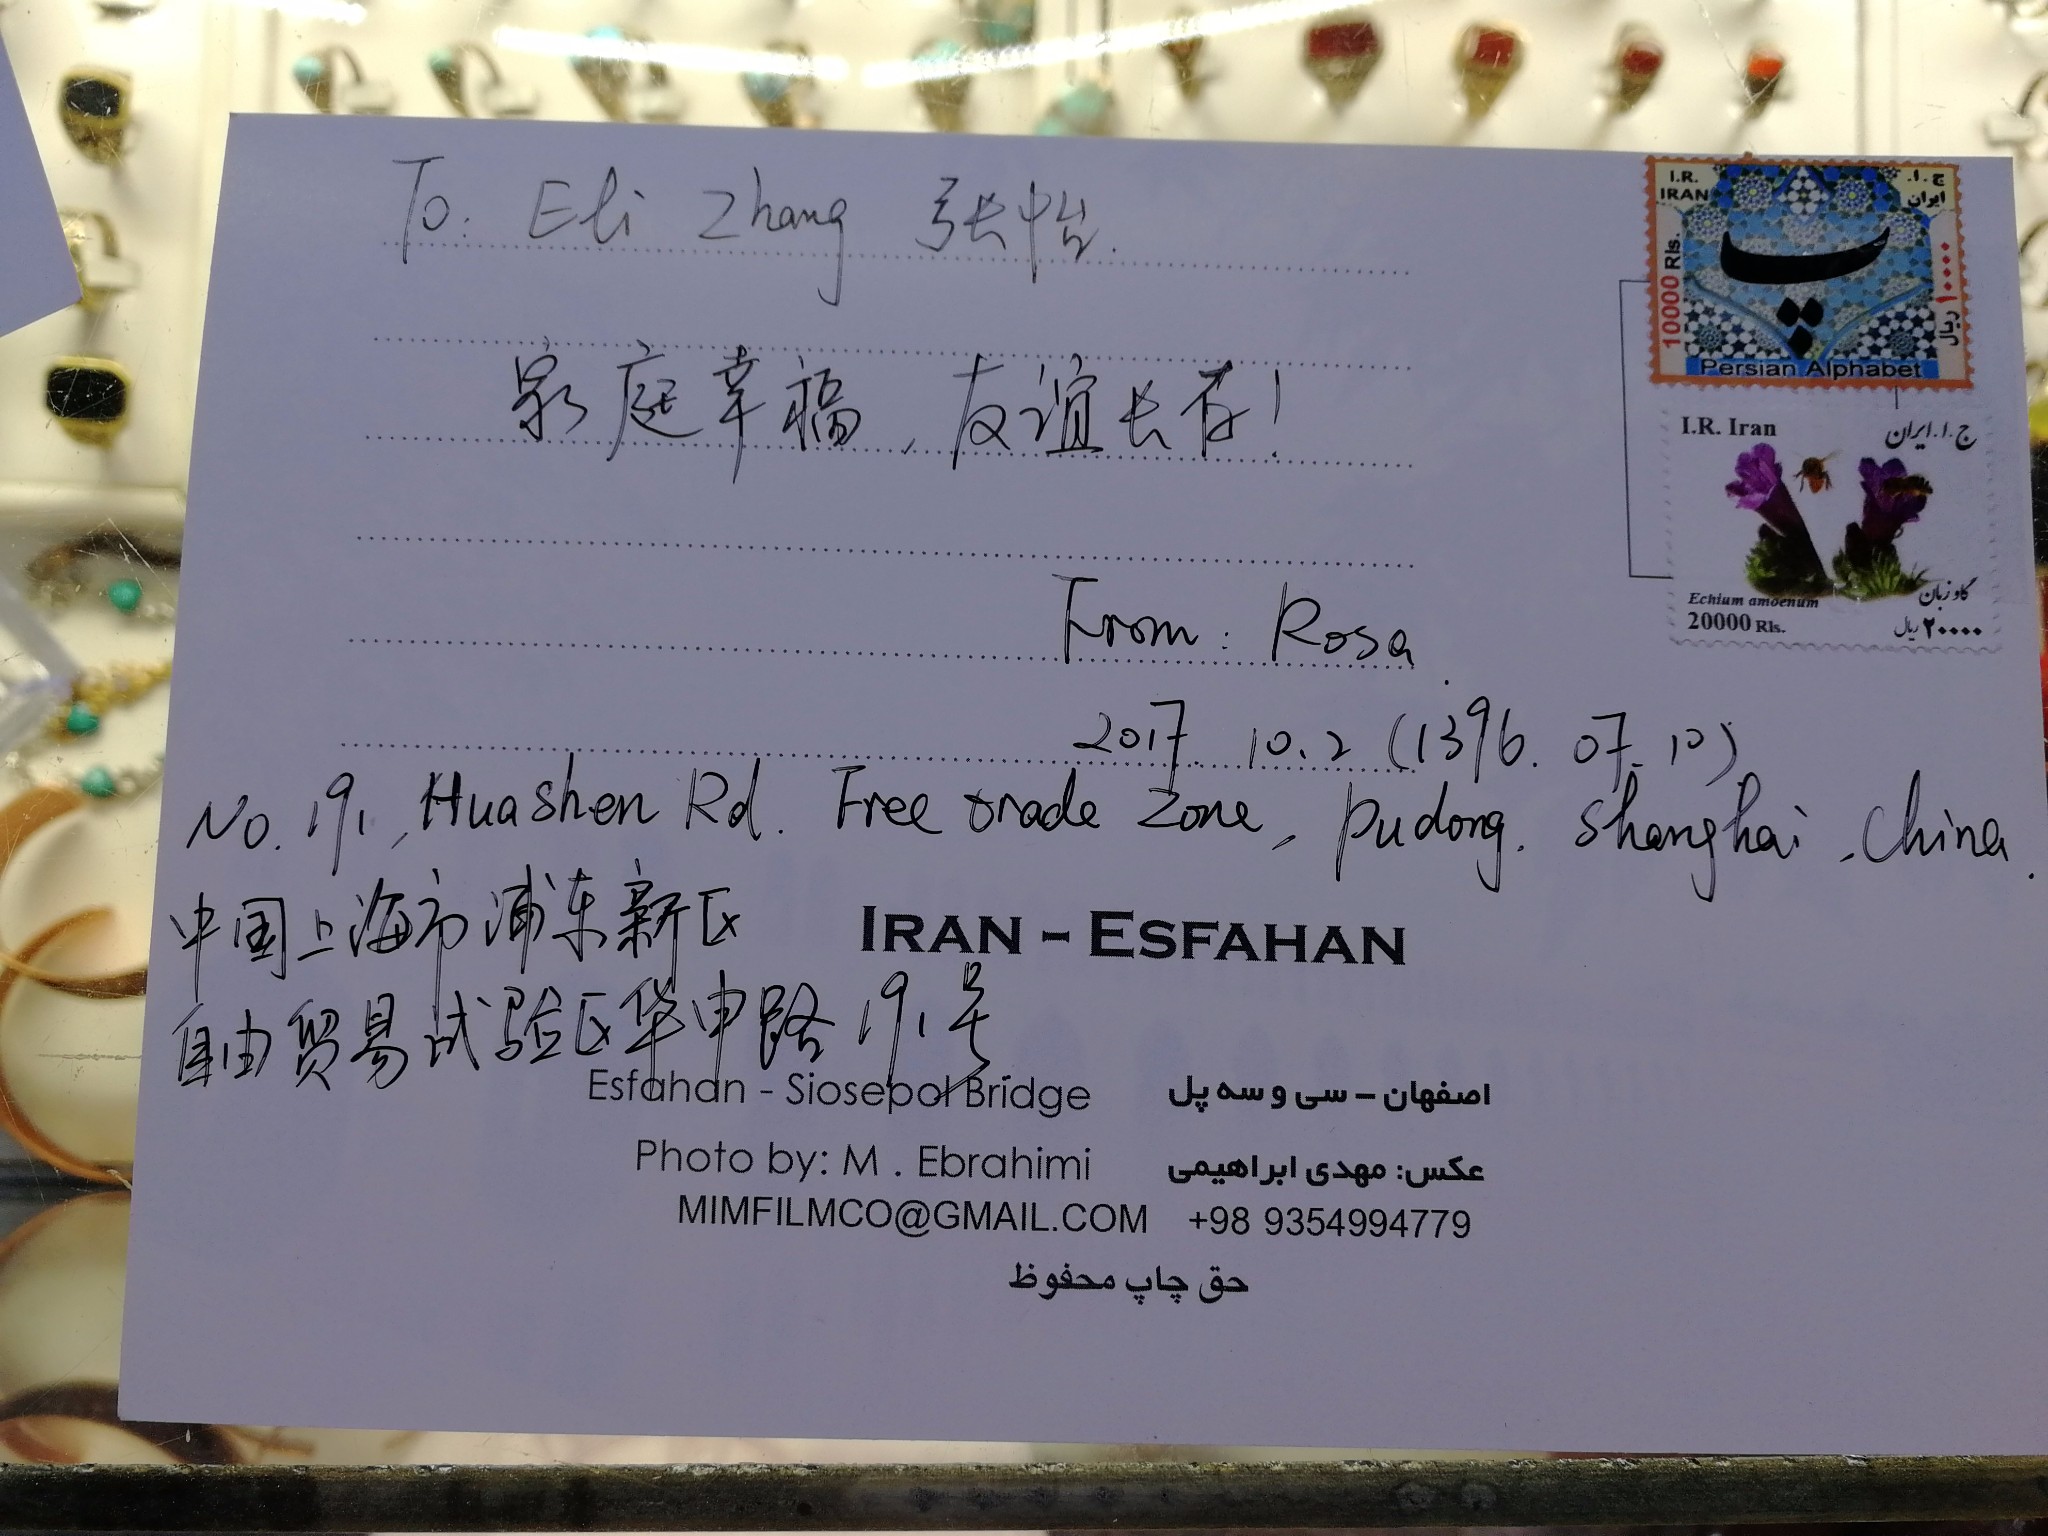 To: Eli Zhang 张怡.
家庭幸福,友谊长存!
From: Rosa.
2017. 10. 2 (1396. 07. 10)
No. 191, Huashen Rd. Free trade Zone, Pudong. Shanghai, China.
中国上海市浦东新区
自由贸易试验区华申路191号
IRAN - ESFAHAN
Esfahan - Siosepol Bridge اصفهان - سی و سه پل
Photo by: M . Ebrahimi عکس: مهدی ابراهیمی
MIMFILMCO@GMAIL.COM +98 9354994779
حق چاپ محفوظ
I.R. IRAN ج.ا. ایران
10000 Rls. ۱۰۰۰۰ ریال
پ
Persian Alphabet
I.R. Iran ج.ا.ایران
Echium amoenum گاوزبان
20000 Rls. ۲۰۰۰۰ ریال